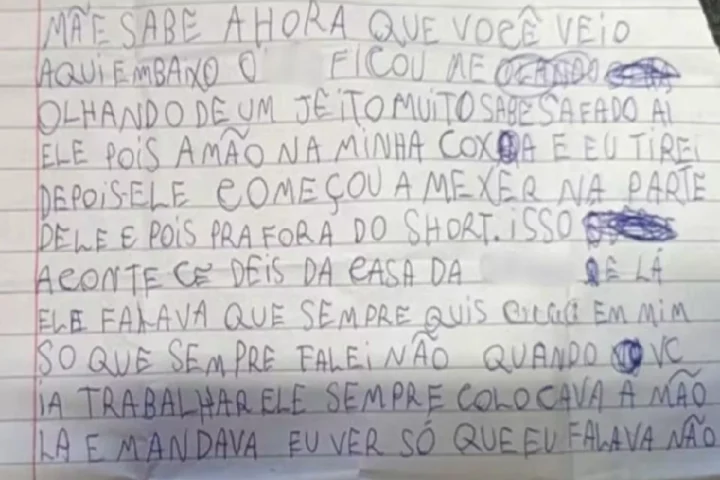 MÃE SABE AHORA QUE VOCÊ VEIO
AQUI EMBAIXO O FICOU ME
OLHANDO DE UM JEITO MUITO SABE SAFADO AI
ELE POIS A MÃO NA MINHA COXA E EU TIREI
DEPOIS ELE COMEÇOU A MEXER NA PARTE
DELE E POIS PRA FORA DO SHORT. ISSO
ACONTE CE DEIS DA CASA DA E LÁ
ELE FALAVA QUE SEMPRE QUIS EM MIM
SO QUE SEMPRE FALEI NÃO QUANDO VC
IA TRABALHAR ELE SEMPRE COLOCAVA A MÃO
LA E MANDAVA EU VER SÓ QUE EU FALAVA NÃO